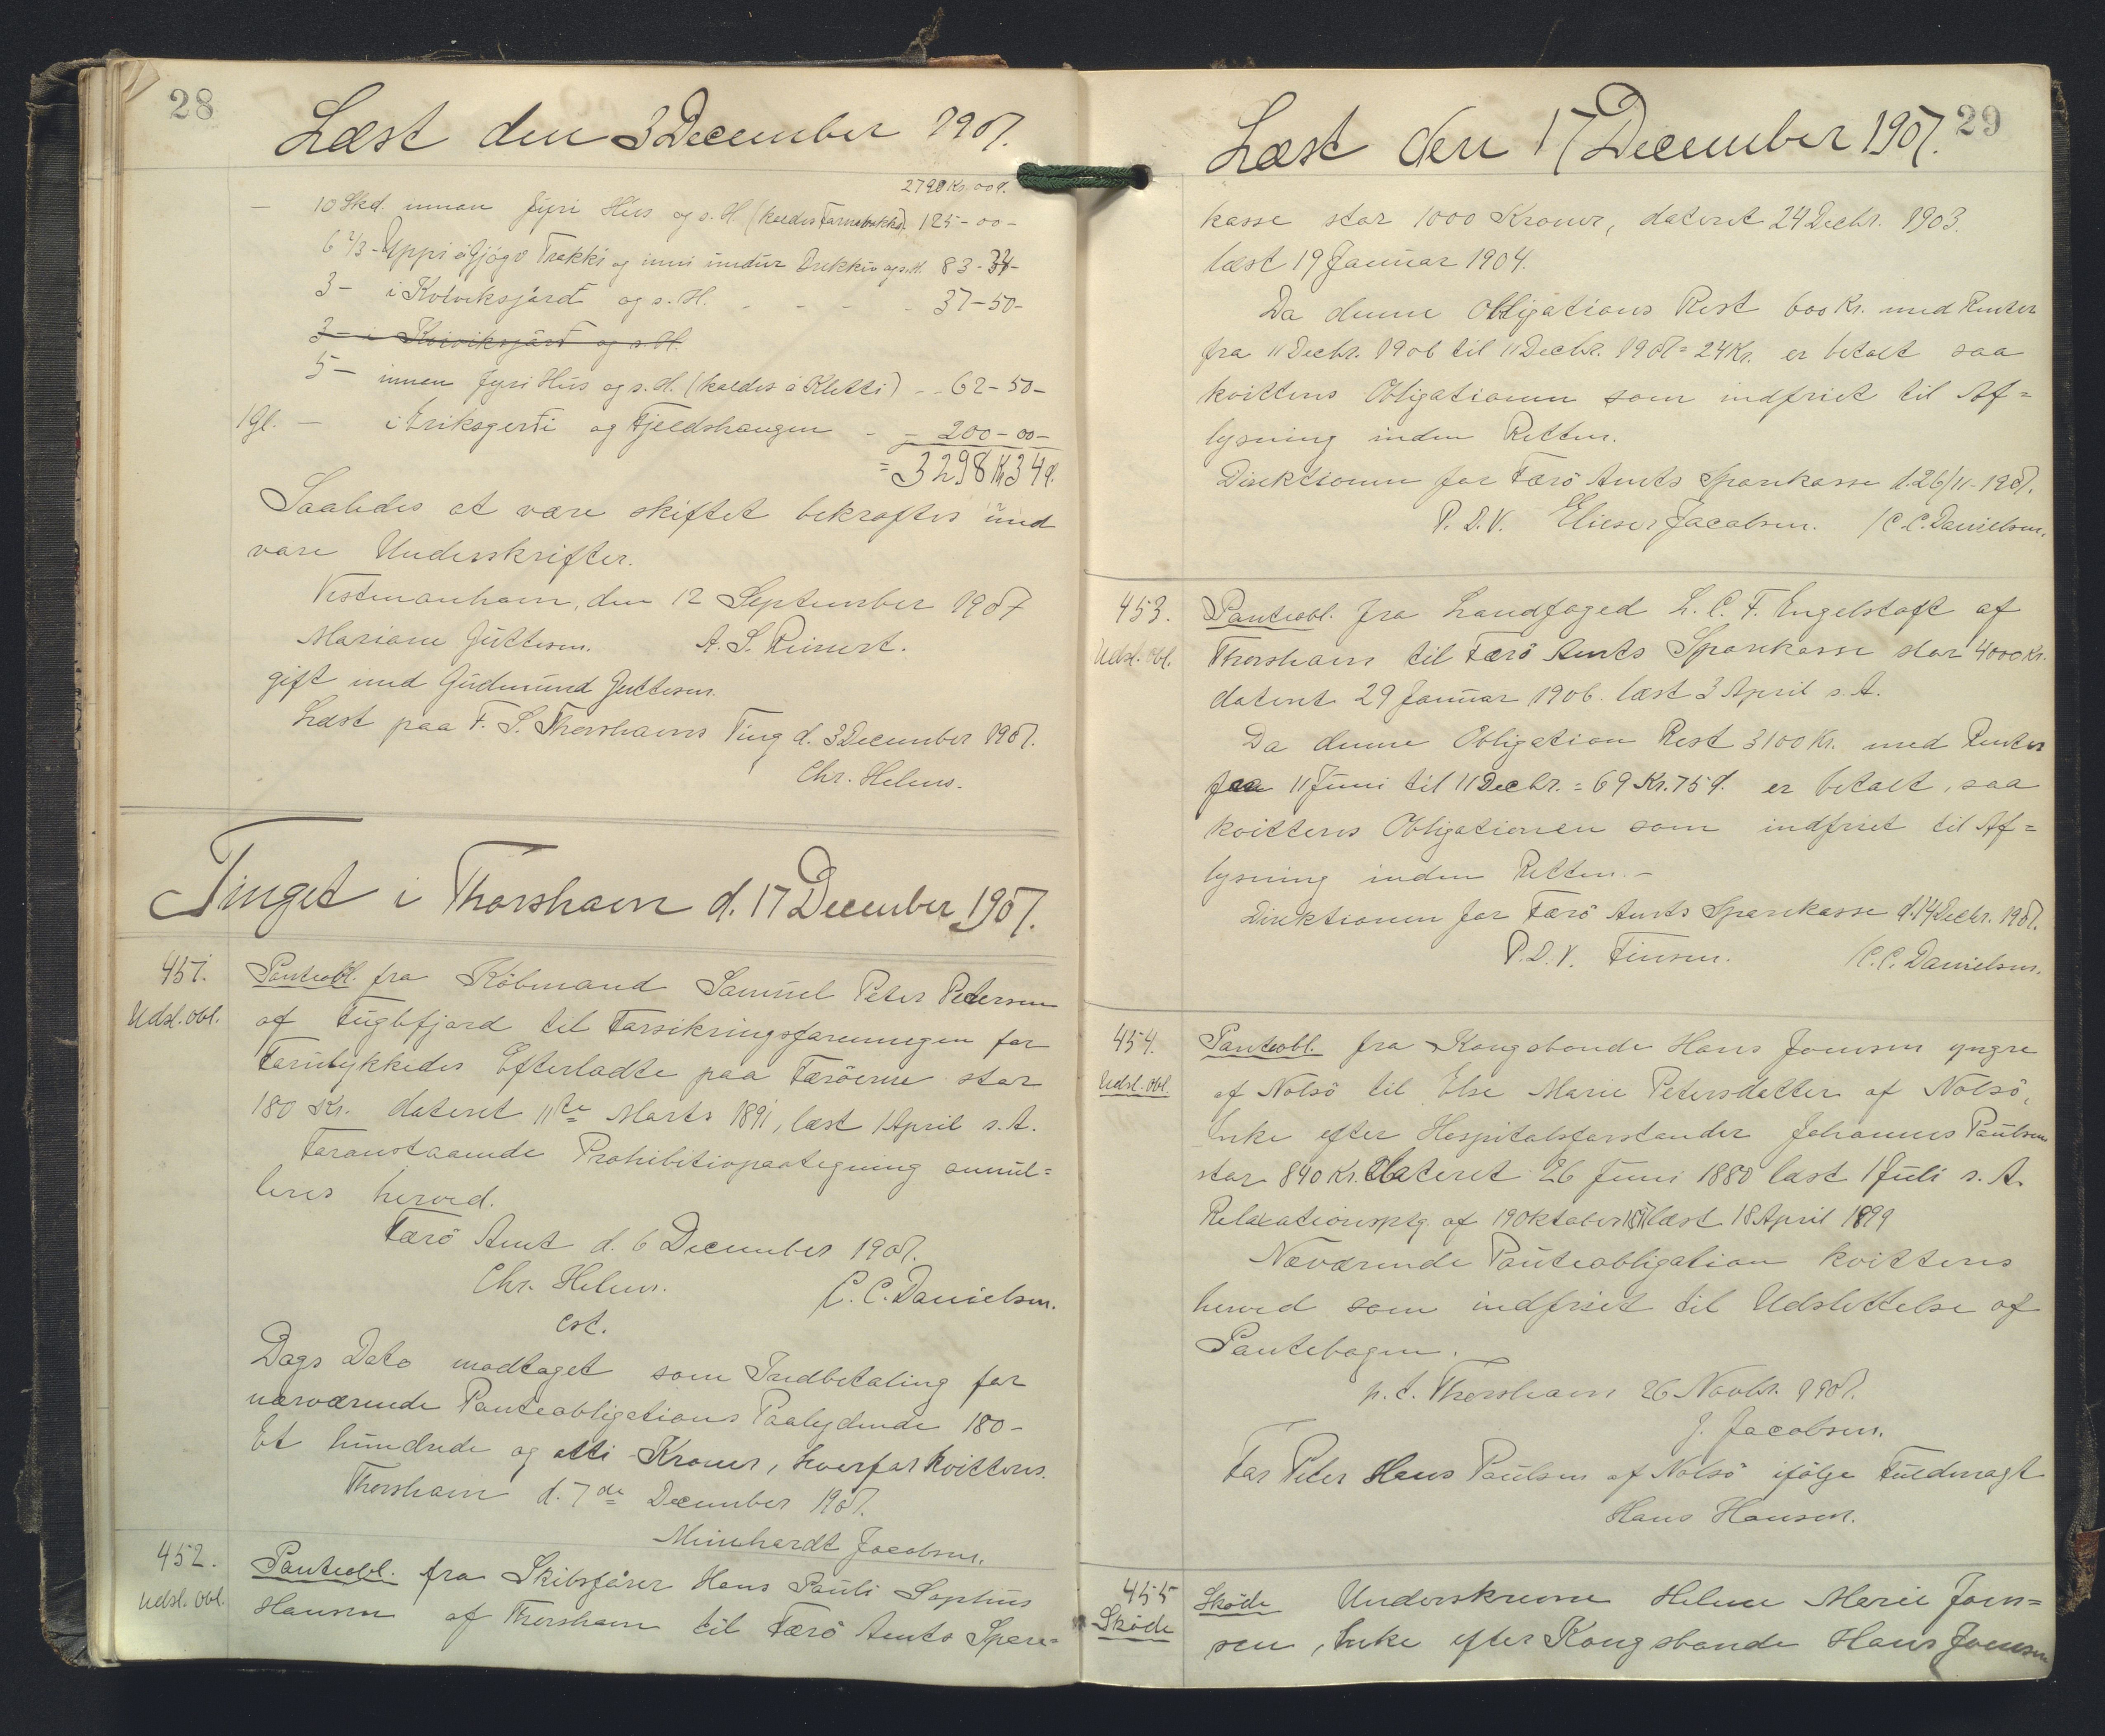 28
Læst den 3 December 1907.
2790 Kr. 00 ø.
— 10 Skd. innan fyri Hús og s. H. (kaldes 125-00-
6 2/3 - Uppi á Gjógv og inni undir og s. H. 83-34-
3 - i Kvívíksjørð og s. H. - - - - 37-50-
3 - i Kvíviksjørð og s. H.
5 - innan fyri Hús og s. H. (kaldes á Kletti) - - 62-50-
1 Gl. — i Eriksgerði og Fjeldshaugen - - 200-00-
= 3298 Kr 34 ø.
Saaledes at være skiftet bekræftes med
vore Underskrifter.
Vestmanhavn, den 12 September 1907
Mariane Juttesen. A. S. Reinert.
gift med Gudmund Juttesen.
Læst paa F. S. Thorshavns Ting d. 3 December 1907.
Chr. Helms.
Tinget i Thorshavn d. 17 December 1907.
451. Panteobl. fra Köbmand Samuel Peter Petersen
Udsl. obl. af Fuglefjord til Forsikringsforeningen for
Forulykkedes Efterladte paa Færöerne stor
180 Kr. dateret 11te Marts 1891, læst 1 April s. A.
Foranstaaende Prohibitivpaategning annul=
leres herved.
Færö Amt d. 6 December 1907.
Chr. Helms. C. C. Danielsen.
cst.
Dags Dato modtaget som Indbetaling for
nærværende Panteobligations Paalydende 180 -
Et hundrede og otti Kroner, hvorfor kvitteres.
Thorshavn d. 7de December 1907.
Meinhardt Jacobsen.
452. Panteobl. fra Skibsförer Hans Pauli Sophus
Udsl. obl. Hansen af Thorshavn til Færö Amts Spare=
Læst den 17 December 1907. 29
kasse stor 1000 Kroner, dateret 24 Decbr. 1903.
læst 19 Januar 1904.
Da denne Obligations Rest 600 Kr. med Renter
fra 11 Decbr. 1906 til 11 Decbr. 1907 = 24 Kr. er betalt saa
kvitteres Obligationen som indfriet til Af=
lysning inden Retten.
Direktionen for Færö Amts Sparekasse d. 26/11-1907.
P. D. V. Elieser Jacobsen. /C. C. Danielsen.
453. Panteobl. fra Landfoged L. C. F. Engelstoft af
Udsl. obl. Thorshavn til Færö Amts Sparekasse stor 4000 Kr.
dateret 29 Januar 1906. læst 3 April s. A.
Da denne Obligation Rest 3100 Kr. med Renter
fra 11 Juni til 11 Decbr. = 69 Kr. 75 ø. er betalt, saa
kvitteres Obligationen som indfriet til Af=
lysning inden Retten. -
Direktionen for Færö Amts Sparekasse d. 14 Decbr. 1907.
P. D. V. Finsen. /C. C. Danielsen.
454. Panteobl. fra Kongsbonde Hans Joensen yngre
Udsl. obl. af Nolsö til Else Marie Petersdatter af Nolsö,
Enke efter Hospitalsforstander Johannes Paulsen
stor 840 Kr. dateret 26 Juni 1880 læst 1 Juli s. A.
Relaxationsptg. af 19 Oktober læst 18 April 1899
Nærværende Panteobligation kvitteres
herved som indfriet til Udslettelse af
Pantebogen.
p. t. Thorshavn 26 Novbr. 1907.
J. Jacobsen.
For Peter Hans Poulsen af Nolsö ifølge Fuldmagt
Hans Hansen.
455 Skøde Underskrevne Helene Marie Joen=
Skøde sen, Enke efter Kongsbonde Hans Joensen